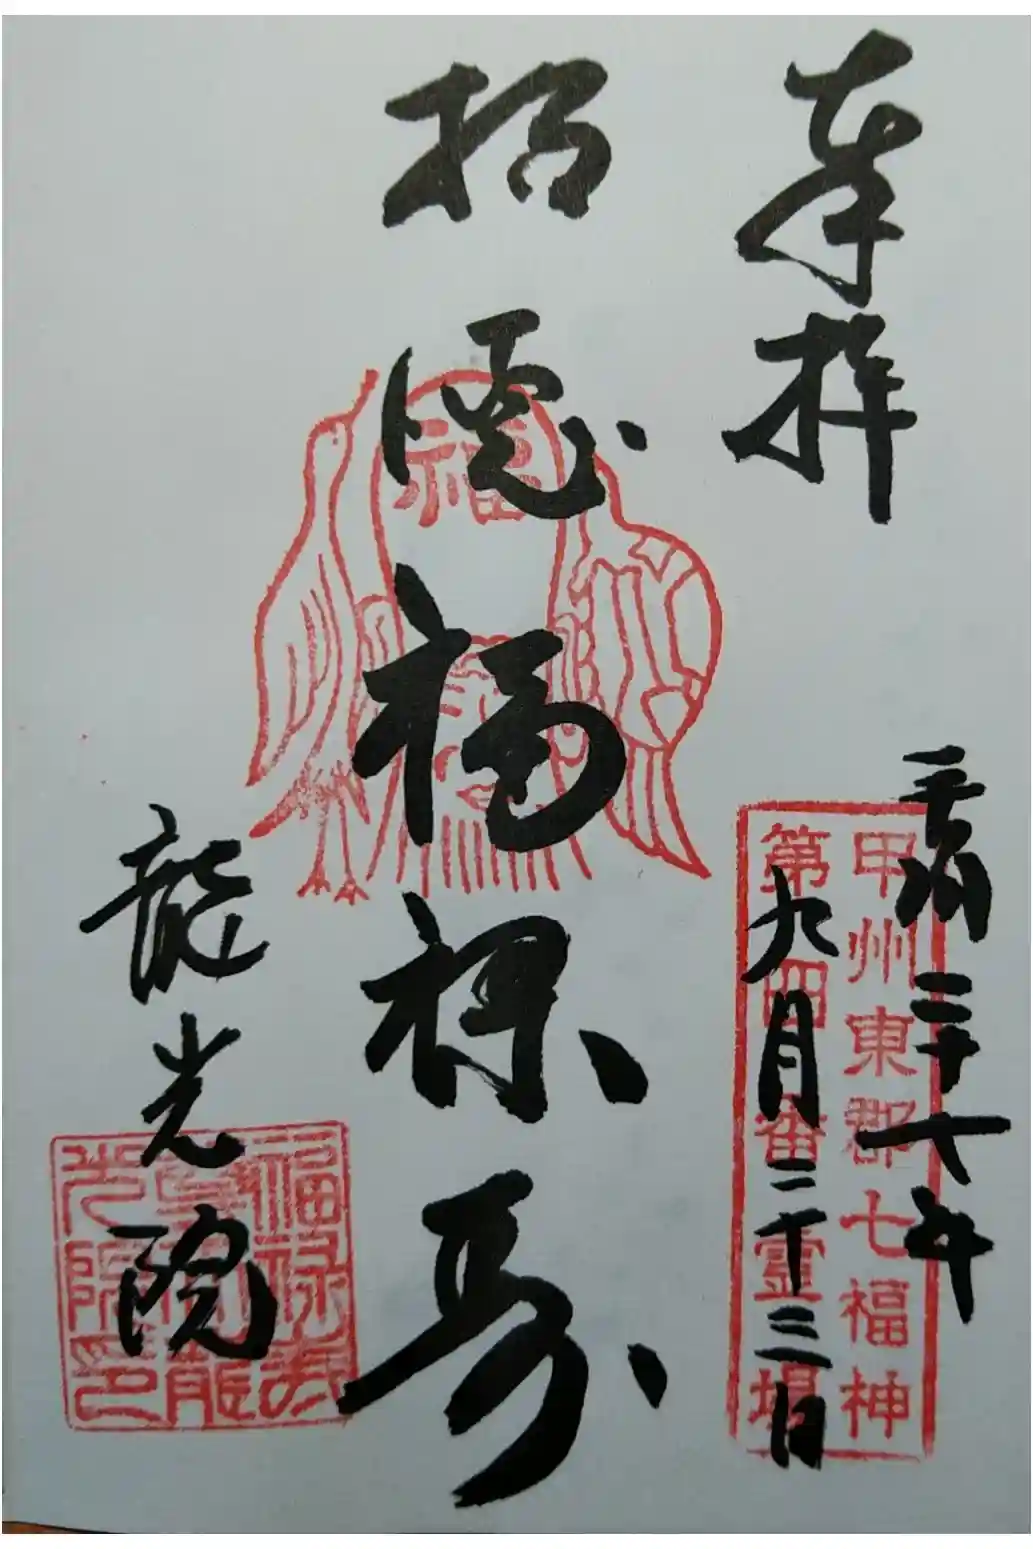 奉拝
平成二十七年
九月二十三日
甲州東郡七福神
第四番霊場
招德福禄寿
福
龍光院